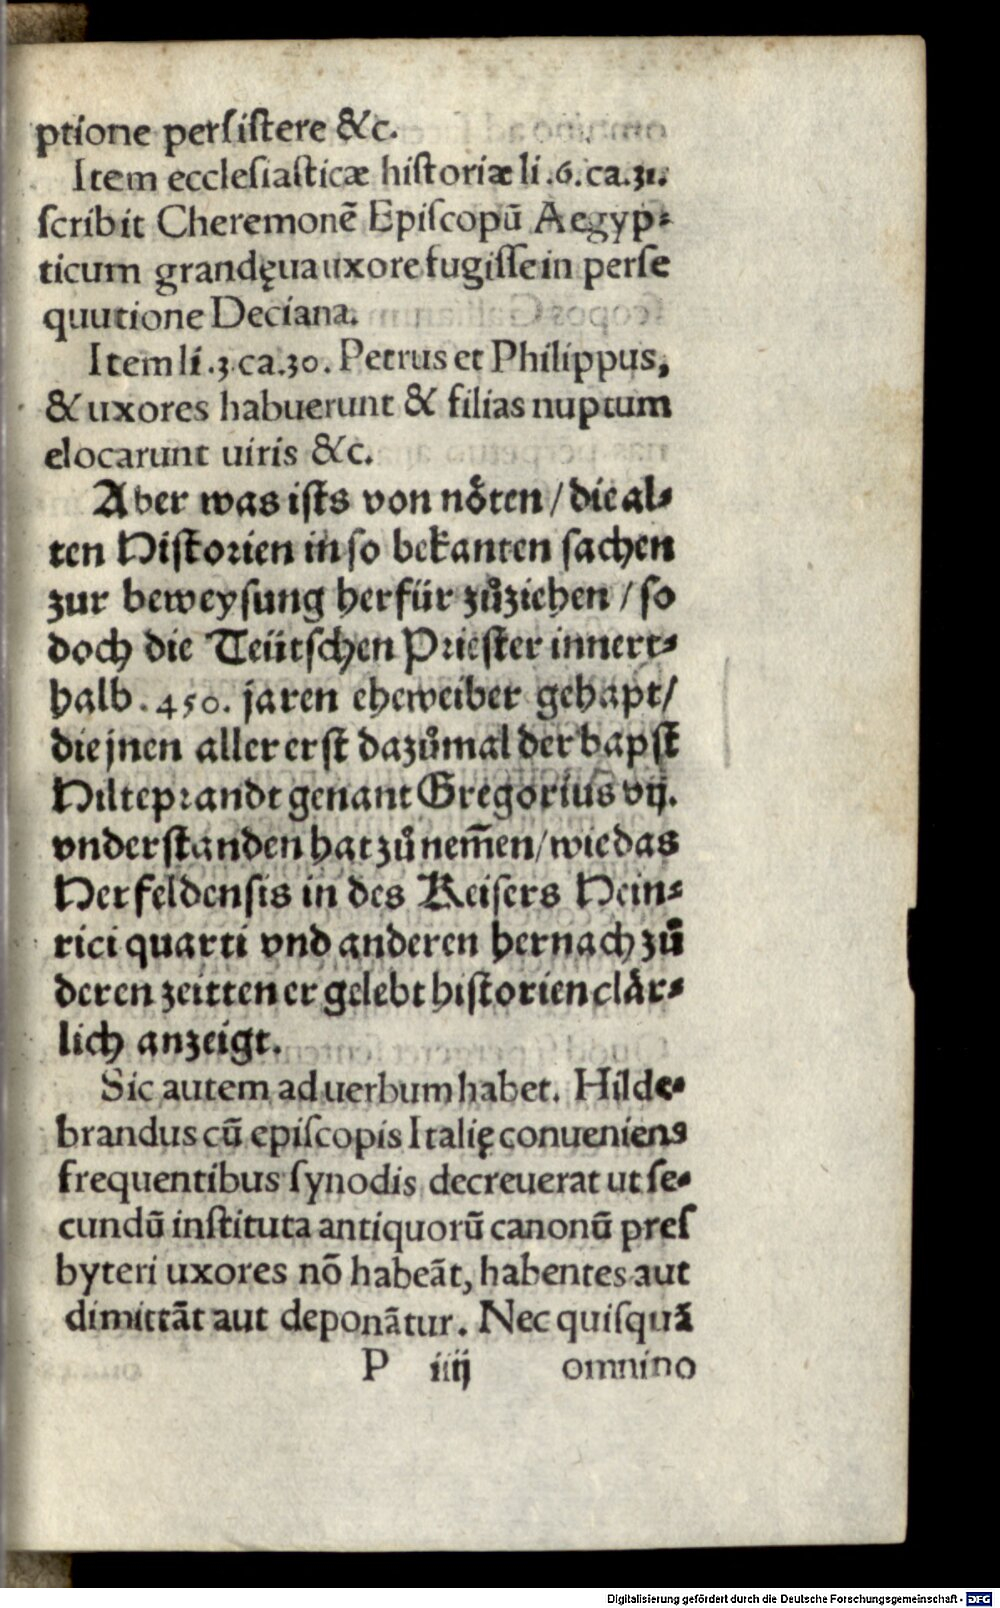 ptione persistere &c.
Item ecclesiasticæ historiæ li .6. ca.31.
scribit Cheremonē Episcopū Aegyp⸗
ticum grandęua uxore fugisse in perse
quutione Deciana.
Item li .3. ca.30. Petrus et Philippus,
& uxores habuerunt & filias nuptum
elocarunt uiris &c.
Aber was ists von nöten / die al⸗
ten Historien in so bekanten sachen
zur beweysung herfür zůziehen / so
doch die Teütschen Priester innert⸗
halb . 450. jaren eheweiber gehapt/
die jnen aller erst dazůmal der bapst
Hilteprandt genant Gregorius vij.
vnderstanden hat zů nem̄en/ wie das
Herfeldensis in des Keisers Hein⸗
rici quarti vnd anderen hernach zů
deren zeitten er gelebt historien clår⸗
lich anzeigt.
Sic autem ad uerbum habet. Hilde⸗
brandus cū episcopis Italię conueniens
frequentibus synodis decreuerat ut se⸗
cundū instituta antiquorū canonū pres
byteri uxores nō habeāt, habentes aut
dimittāt aut deponātur. Nec quisquā
P iiij omnino
Digitalisierung gefördert durch die Deutsche Forschungsgemeinschaft - DFG